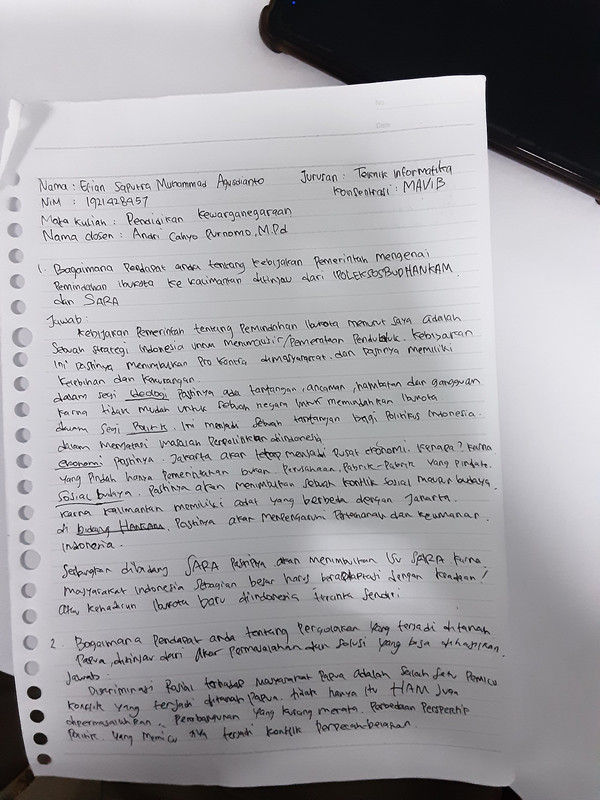 No
Date
Nama : Efian Saputra Muhammad Agusdianto
Jurusan : Teknik Informatika
NIM : 1921428457
Konsentrasi : MAVIB
Mata kuliah : Pendidikan Kewarganegaraan
Nama dosen : Andri Cahyo Purnomo, M.Pd
1. Bagaimana Pendapat anda tentang kebijakan Pemerintah mengenai
Pemindahan Ibukota ke kalimantan ditinjau dari IPOLEKSOSBUDHANKAM
dan SARA
Jawab :
Kebijakan Pemerintah tentang Pemindahan Ibukota menurut saya adalah
Sebuah strategi Indonesia untuk /Pemerataan Penduduk. Kebijakan
ini Pastinya menimbulkan Pro kontra dimasyarakat. dan Pastinya memiliki
Kelebihan dan Kekurangan.
dalam segi Ideologi Pastinya ada tantangan, ancaman, hambatan dan gangguan
karna tidak mudah untuk sebuah negara untuk memindahkan Ibukota
dalam segi Politik. Ini menjadi sebuah tantangan bagi Politikus Indonesia.
dalam mengatasi masalah Perpolitikan diindonesia
ekonomi Pastinya. Jakarta akan tetap menjadi Pusat ekonomi. kenapa? karna
yang Pindah hanya Pemerintahan bukan Perusahaan, Pabrik-Pabrik yang Pindah.
Sosial budaya. Pastinya akan menimbulkan sebuah konflik sosial maupun budaya.
karna kalimantan memiliki adat yang berbeda dengan Jakarta.
di bidang HANKAM. Pastinya akan mempengaruhi Pertahanan dan keamanan.
Indonesia.
Sedangkan dibidang SARA Pastinya akan menimbulkan Isu SARA karna.
masyarakat Indonesia sebagian besar harus beradaptasi dengan keadaan/
atau kehadiran Ibukota baru diindonesia tercinta sendiri
2. Bagaimana Pendapat anda tentang Pergolakan yang terjadi ditanah
Papua, ditinjau dari akar Permasalahan dan solusi yang bisa
Jawab :
Diskriminasi Rasial terhadap masyarakat Papua adalah salah satu Pemicu
konflik yang terjadi ditanah Papua. tidak hanya itu HAM Juga
dipermasalahkan. Pembangunan yang kurang merata. Perbedaan Perspektif
Politik. yang memicu terjadi konflik